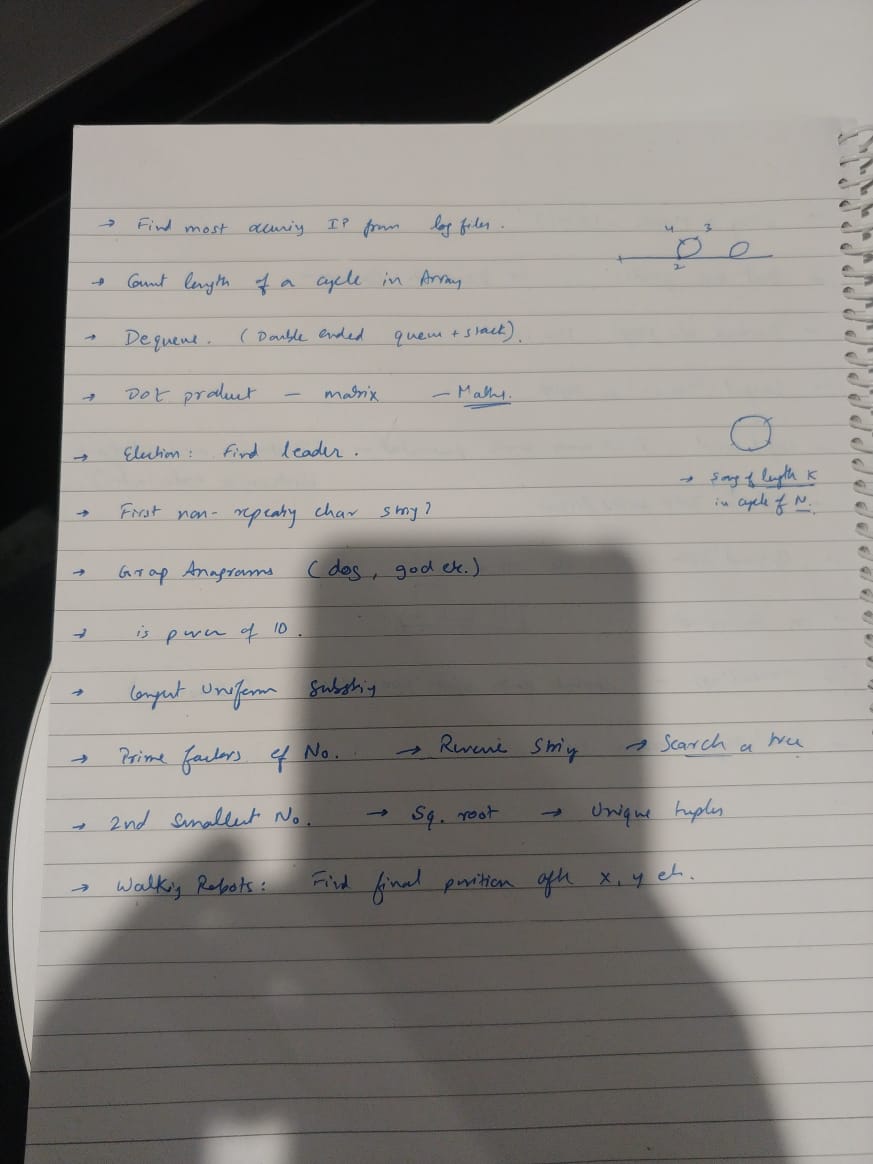 → Find most occuring IP from log files.
4 3
2
→ Count length of a cycle in Array
→ Dequeue. (Double ended queue + stack).
→ Dot product – matrix – Maths.
→ Election: Find leader.
→ Song of length K
in cycle of N.
→ First non-repeating char string?
→ Group Anagrams (dog, god etc.)
→ is power of 10.
→ Longest Uniform Substring
→ Prime factors of No. → Reverse String → Search a tree
→ 2nd Smallest No. → Sq. root → Unique tuples
→ Walking Robots: Find final position after x, y etc.